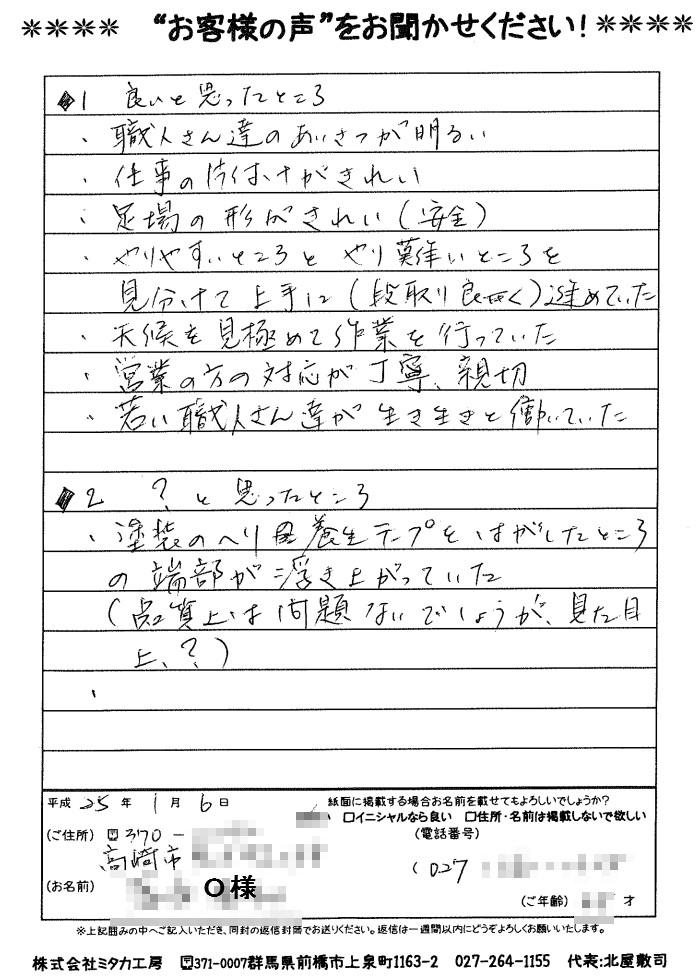 ＊＊＊＊ “お客様の声”をお聞かせください！＊＊＊＊
◆1 良いと思ったところ
・職人さん達のあいさつが明るい
・仕事の片付けがきれい
・足場の形がきれい(安全)
・やりやすいところと やり難いところを
見分けて上手に(段取り良く)進めていた
・天候を見極めて作業を行っていた
・営業の方の対応が丁寧、親切
・若い職人さん達が生き生きと働いていた
◆2 ？と思ったところ
・塗装のヘリ 養生テープをはがしたところ
の端部が浮き上がっていた
(品質上は問題ないでしょうが、見た目
上、？)
・
平成 25 年 1 月 6 日
紙面に掲載する場合お名前を載せてもよろしいでしょうか？
い □イニシャルなら良い □住所・名前は掲載しないで欲しい
(ご住所) 〒370－
(電話番号)
高崎市
(027
(お名前) O様
(ご年齢) 才
※上記囲みの中へご記入いただき、同封の返信封筒でお送りください。返信は一週間以内にどうぞよろしくお願いいたします。
株式会社ミタカ工房 〒371-0007群馬県前橋市上泉町1163-2 027-264-1155 代表:北屋敷司